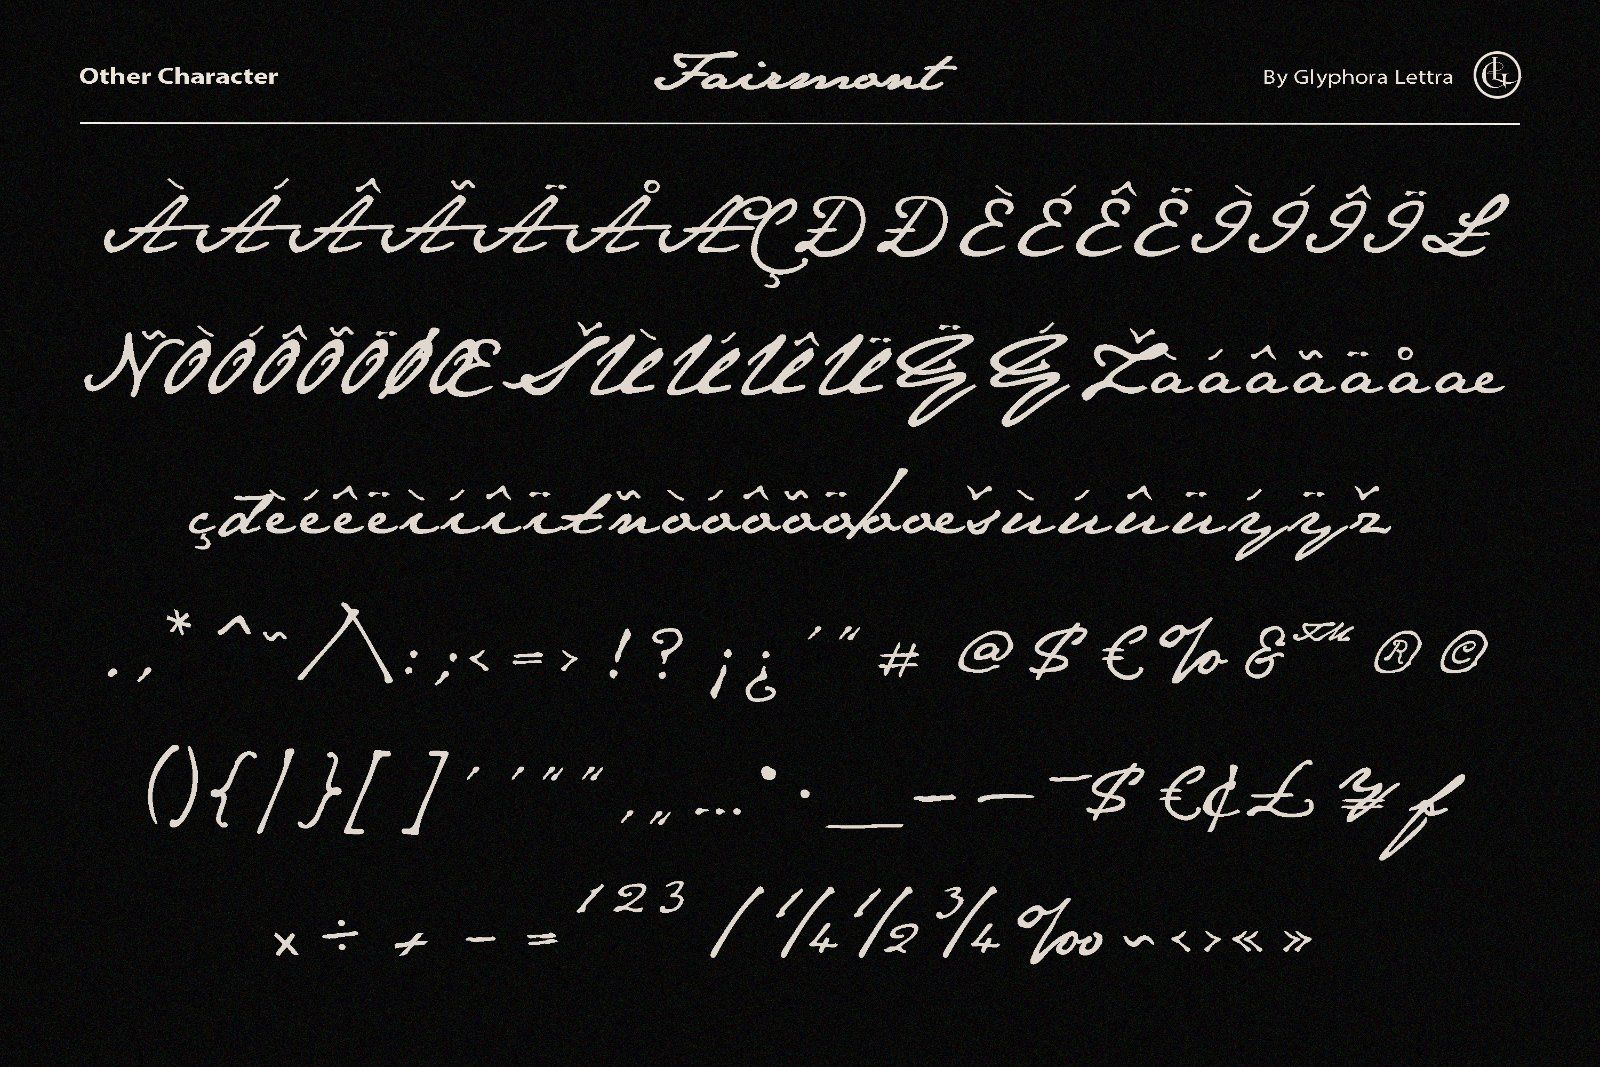 Other Character
Fairmont
By Glyphora Lettra
ÀÁÂÃÄÅÆÇÐĐÈÉÊËÌÍÎÏŁ
ÑÒÓÔÕÖØŒŠÙÚÛÜŸÝŽàáâãäåæ
çđèéêëìíîïłñòóôõöøœšùúûüýÿž
.,*^~/\:;<=>!?¡¿'"#@$€%&™®©
(){|}[]‘’“”‚„…•·_–—¯$€¢£¥ƒ
×÷+−=¹²³⁄¼½¾‰~‹›«»